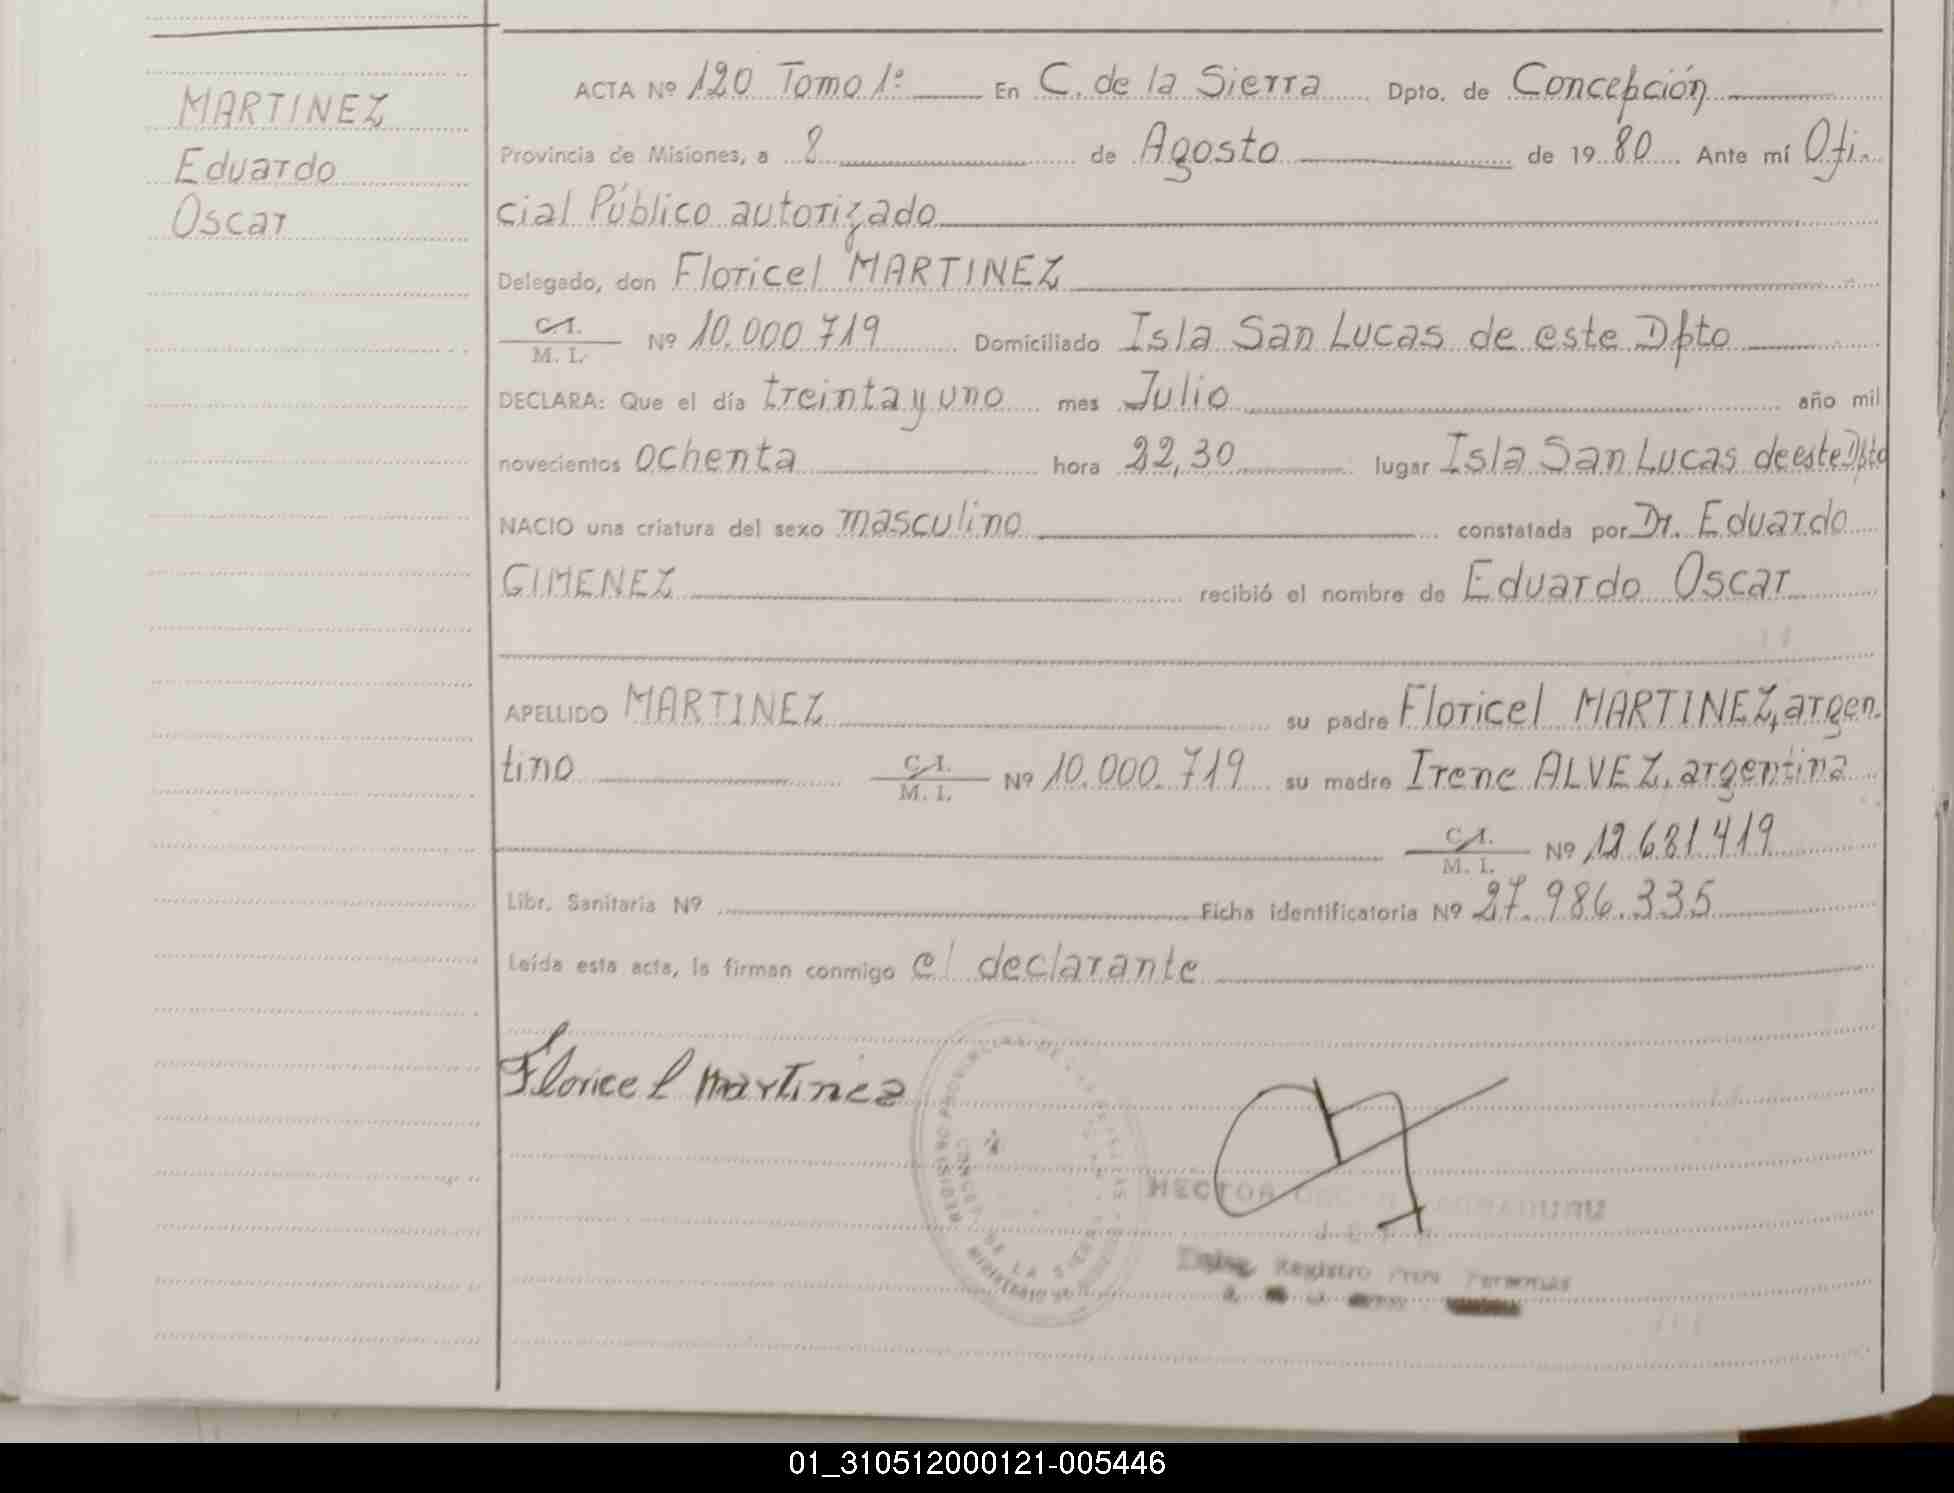 MARTINEZ
Eduardo
Oscar
ACTA Nº 120 Tomo 1º En C. de la Sierra Dpto. de Concepción
Provincia de Misiones, a 8 de Agosto de 1980 Ante mí Ofi-
cial Público autorizado
Delegado, don Floricel MARTINEZ
C.I.
M. I. Nº 10.000.719 Domiciliado Isla San Lucas de este Dpto
DECLARA: Que el día treinta y uno mes Julio año mil
novecientos ochenta hora 22,30 lugar Isla San Lucas de este Dpto
NACIO una criatura del sexo masculino constatada por Dr. Eduardo
GIMENEZ recibió el nombre de Eduardo Oscar
APELLIDO MARTINEZ su padre Floricel MARTINEZ, argen-
tino C.I.
M. I. Nº 10.000.719 su madre Irene ALVEZ, argentina
C.I.
M. I. Nº 12.681.419
Libr. Sanitaria Nº Ficha identificatoria Nº 27.986.335
Leída esta acta, la firman conmigo el declarante
Floricel Martinez
HECTOR
JEFE
Registro Prov Personas
01_310512000121-005446